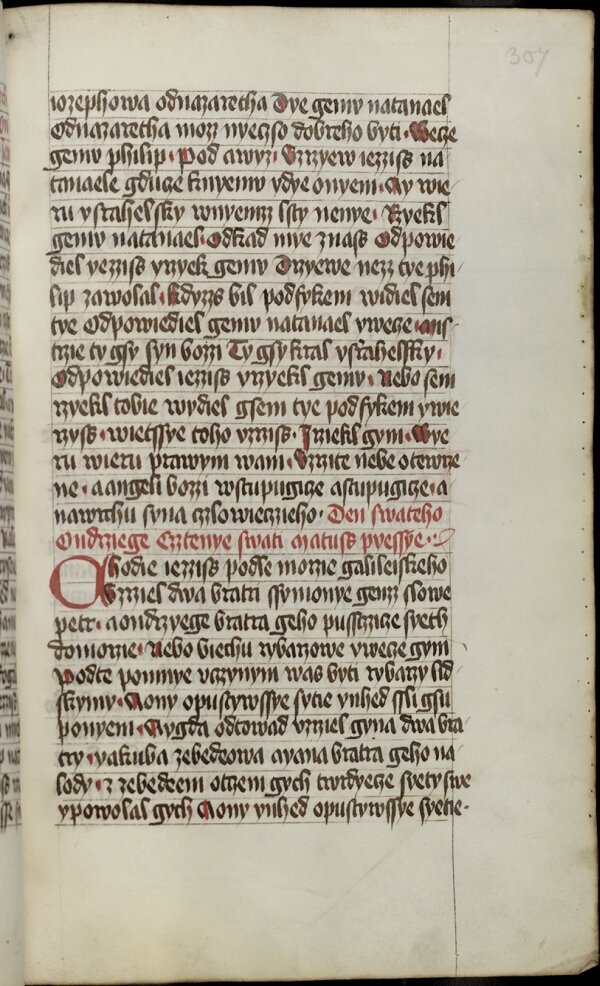 307
iozephowa odnazaretha Dye gemu natanael
Odnazaretha moz nyeczso dobreho byti · Wecze
gemu philip · Pod awyz · Vzrzyew iezziss na
tanaele gduce knyemu ydye onyem · Ay wie
ru ystahelsky wnyemz lsty nenye · Rzyekl
gemu natanael · Odkad mye znass Odpowie
diel yezziss yrzyek gemu Drzyewe nezz tye phi
lip zawolal · Kdyzzs bil podfykem widiel sem
tye Odpowiediel gemu natanael ywecze · Mis
trzie ty gsy syn bozzi Ty gsy kral ysrahelsky ·
Odpowiediel iezziss yrzyekl gemu · Nebo sem
rzyekl tobie wydiel gsem tye podfykem ywie
rzyss · wietssye toho vzrziss · Irziekl gym · Wye
ru wieru prawym wam · Vzrzite nebe otewrze
ne · aangeli bozzi wstupugicze astupugicze · a
nawrchu syna czlowieczieho · Den swateho
Ondrziege Cztenye swati Matuss pyessye ·
Chodie iezziss podle morzie galileiskeho
Vzrziel dwa bratri ssymonye genz slowe
petr · aondrzyege bratra geho pusstzicze syeth
domorzie · Nebo biechu rybarzowe ywecze gym
Podte ponmye vczynym was byti rybarzy lid
skymy · Aony opustywssye sytie ynhed ssli gsu
ponyem · Aygda odtowad vzrziel gyna dwa bra
try · yakuba zebedeowa ayana bratra geho na
lody · z zebedeem otczem gych twrdyecze syety swe
ypowolal gych Aony ynhed opustywssye syetie ·